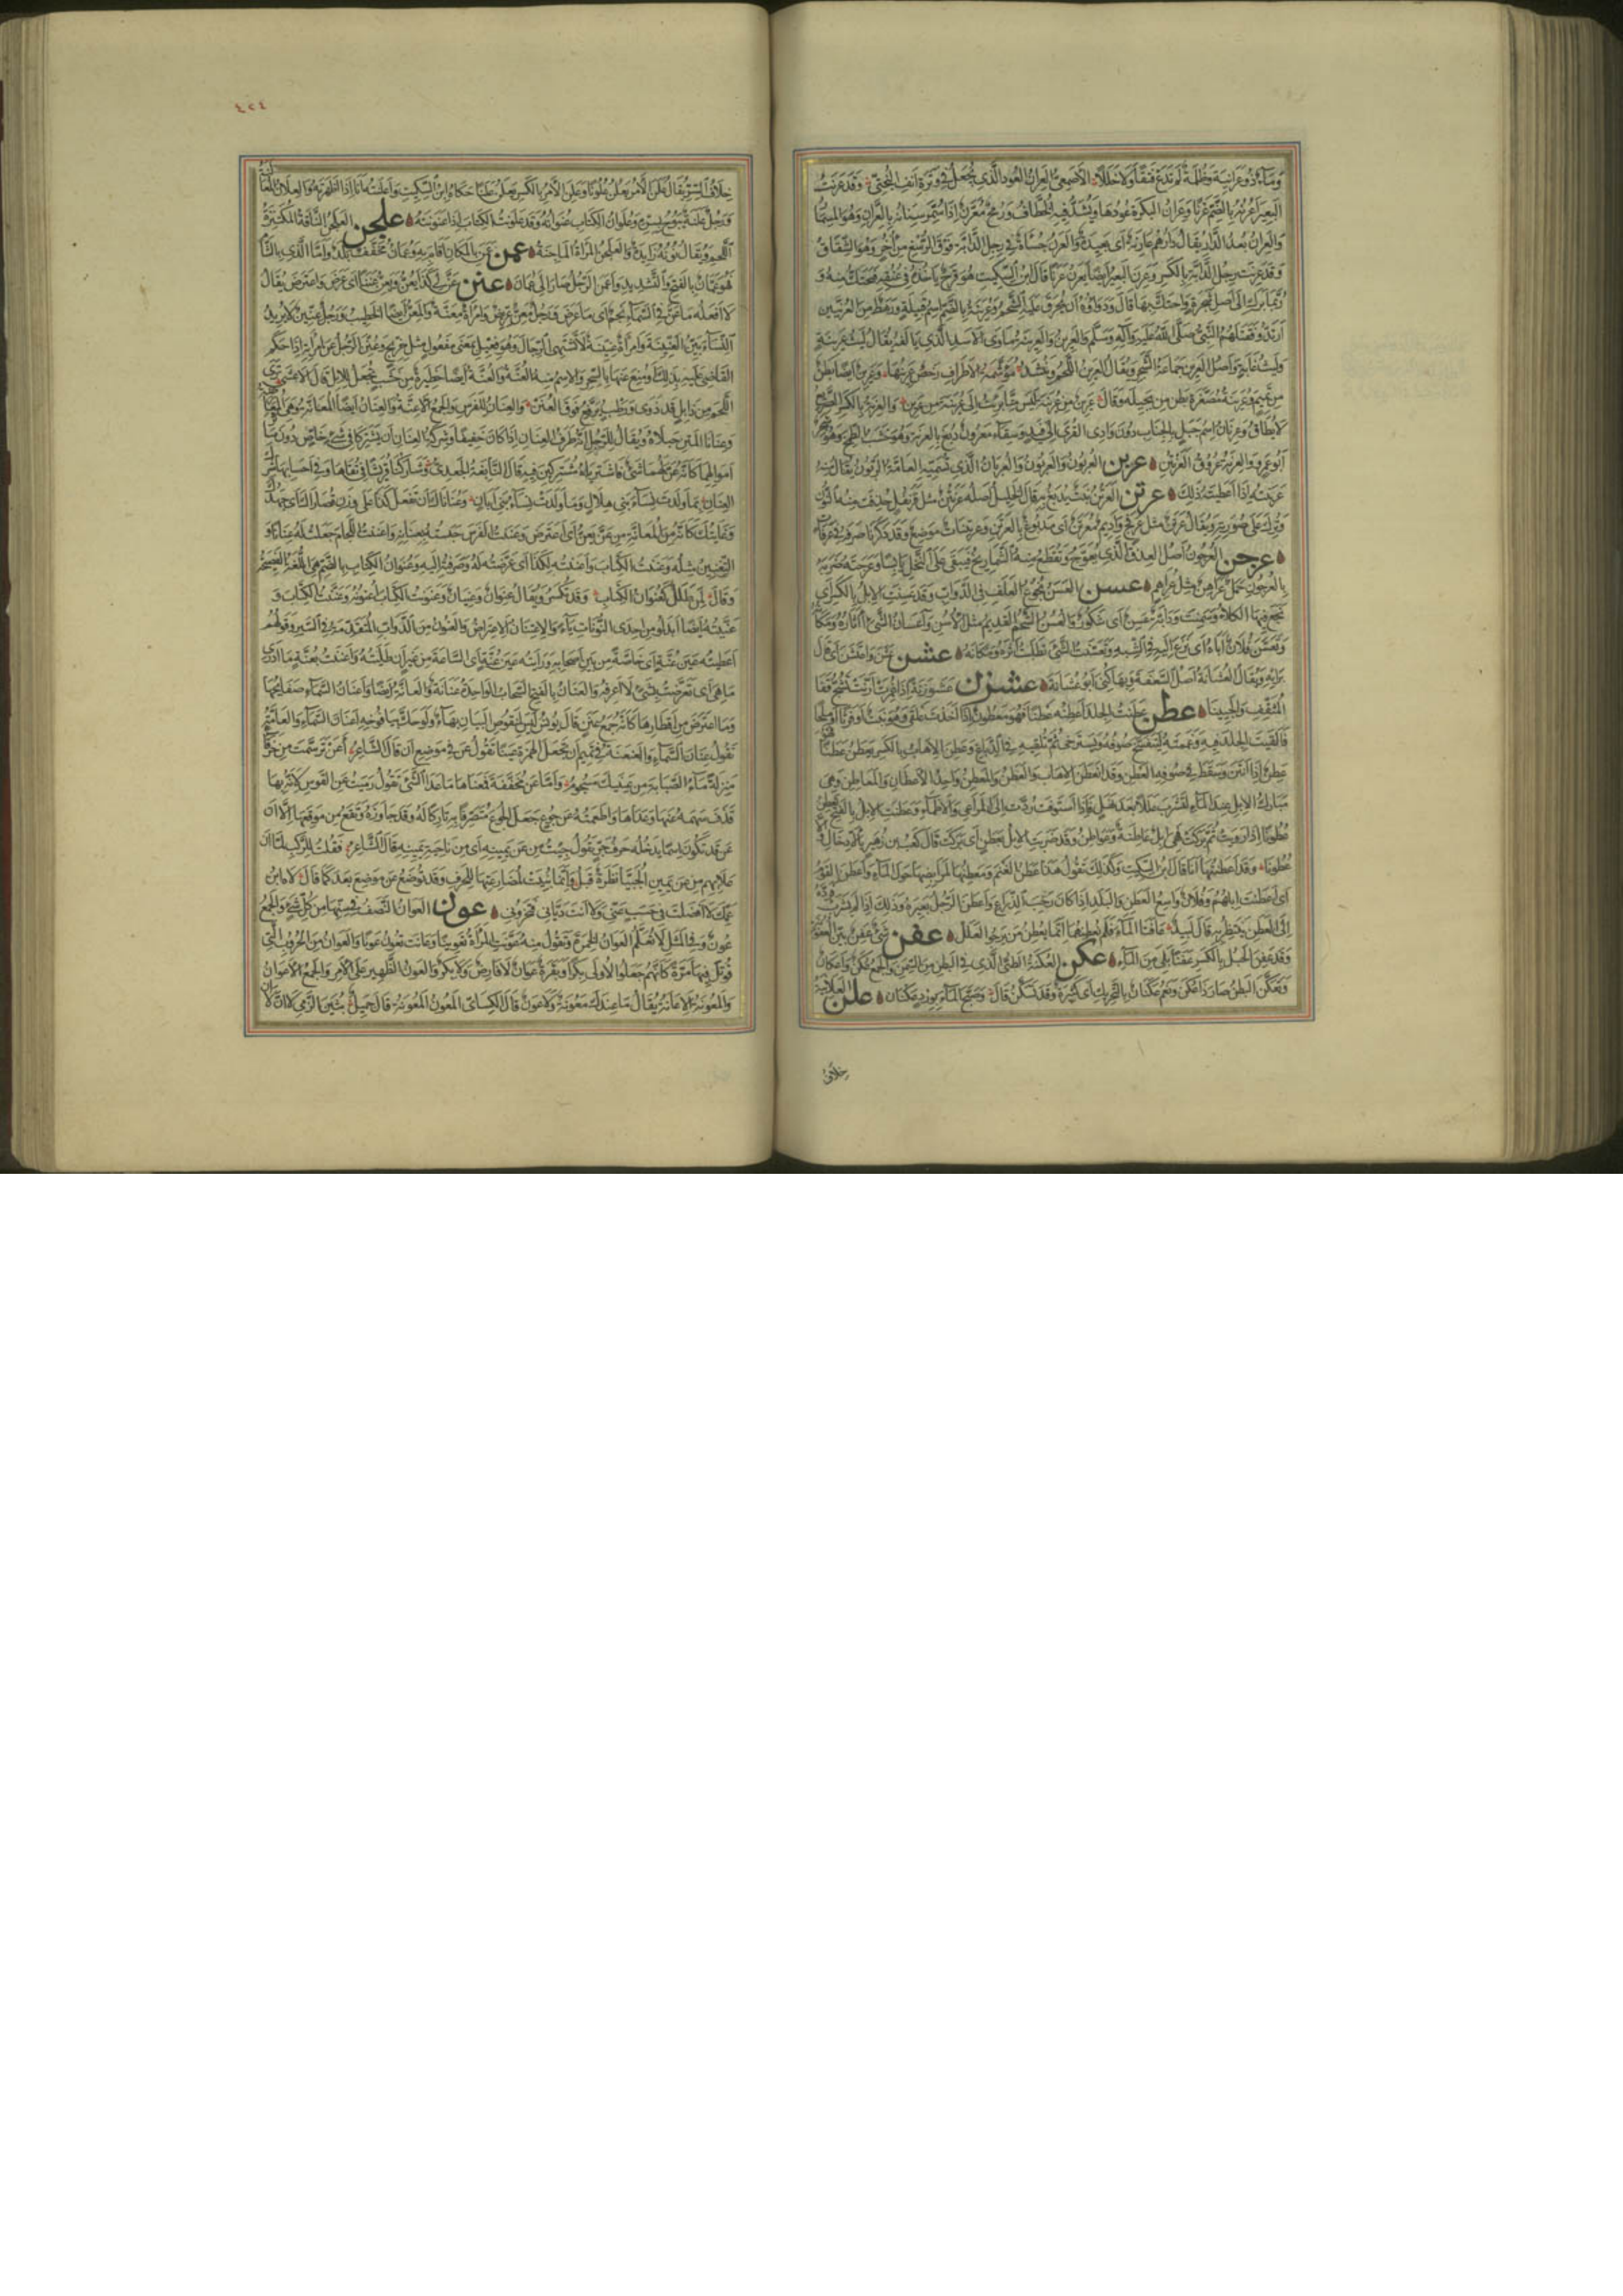 وماء ذو عرانية وظلمة لم تدع فتقا ولا خللا الأصمعي العران العود الذي يجعل في وترة أنف البختي وقد عرنت
البعير أعرنه بالضم عرنا وعران البكرة عودها ويشد فيه الخطاف ورمح معرن إذا سمر سنانه بالعران وهو المسمار
والعران بعد الدار يقال دارهم عارنة أي بعيدة والعرن جسأة في رجل الدابة فوق الرسغ من أخر وهو الشقاق
وقد عرنت رجل الدابة بالكسر وعرن البعير أيضا يعرن عرنا قال ابن السكيت هو قرح يأخذه في عنقه فيحتك منه و
ربما برك إلى أصل شجرة واحتك بها قال ودواؤه أن يحرق عليه الشحم وعرينة بالضم اسم قبيلة ورهط من العرنيين
ارتدوا فقتلهم النبي صلى الله عليه وآله وسلم والعرين والعرينة مأوى الأسد الذي يألفه يقال ليث عرينة
وليث غابة وأصل العرين جماعة الشجر ويقال العرين اللحم وينشد موشمة الأطراف رخص عرينها وعرين أيضا بطن
من تميم وعرينة مصغرة بطن من بجيلة وقال عرين من عرينة ليس منا برئت إلى عرينة من عرين
لا يطاق وعرنان اسم جبل بالجناب دون وادي القرى إلى فيد وسقاء معرون دبغ بالعرنة وهو خشب الظمخ وهو شجر
عربن العربون والعربون والعربان الذي تسميه العامة الربون يقال منه
عربنته إذا أعطيته ذلك عرتن العرتن نبت يدبغ به قال الخليل أصله عرنتن مثل قرنفل حذفت منه النون
وترك على صورته ويقال عرتن مثل عرفج وأديم معرتن أي مدبوغ بالعرتن وعريتنات موضع وقد ذكرنا صرفه في عرفات
عرجن العرجون أصل العذق الذي يعوج وتقطع منه الشماريخ فيبقى على النخل يابسا وعرجنه ضربه
بالعرجون عرهن جمل عراهن مثل عراهم عسن العسن نجوع العلف في الدواب وقد عسنت الإبل بالكسر أي
نجع فيها الكلأ وسمنت ودابة عسن أي شكور والعسن الشحم القديم مثل الأسن وأعسان الشيء آثاره ومكانه
وتعسن فلان أباه أي نزع إليه في الشبه وتعسنت الشيء تطلبت أثره ومكانه عشن عشن واعتشن أي قال
برأيه ويقال العشانة أصل السعفة وبها كني أبو عشانة عشزن عشوزنة إذا غمزت أرنت تشج قفا
المثقف والجبينا عطن عطنت الجلد أعطنه عطنا فهو معطون إذا أخذت علقى وهو نبت أو فرثا أو ملحا
فألقيت الجلد فيه وغممته ليتفسخ صوفه ويسترخي ثم تلقيه في الدباغ وعطن الإهاب بالكسر يعطن عطنا فهو
عطن إذا أنتن وسقط صوفه في العطن وقد انعطن الإهاب والعطن والمعطن واحد الأعطان والمعاطن وهي
مبارك الإبل عند الماء لتشرب عللا بعد نهل فإذا استوفت ردت إلى المراعي والأظماء وعطنت الإبل بالفتح تعطن
عطونا إذا رويت ثم بركت فهي إبل عاطنة وعواطن وقد ضربت الإبل بعطن أي بركت قال كعب بن زهير
عطونا وقد أعطنتها أنا قال ابن السكيت وكذلك تقول هذا عطن الغنم ومعطنها لمرابضها حول الماء وأعطن القوم
أي عطنت إبلهم وفلان واسع العطن والبلد إذا كان رحب الذراع وأعطن الرجل بعيره وذلك إذا لم يشرب فرده
إلى العطن ينتظر به قال لبيد عافتا الماء فلم نعطنهما إنما يعطن من يرجو العلل عفن شيء عفن بين العفونة
وقد عفن الحبل بالكسر عفنا بلي من الماء عكن العكنة الطي الذي في البطن من السمن والجمع عكن وأعكان
وتعكن البطن صار ذا عكن ونعم عكنان بالتحريك أي كثيرة وقد تسكن قال وصبح الماء بورد عكنان علن العلانية
خلاف
٤٢٤
خلاف السر يقال علن الأمر يعلن علونا وعلن الأمر بالكسر يعلن علنا حكاه ابن السكيت وأعلنته أنا إذا أظهرته والعلان المعالنة
ورجل علنة يبوح بسره وعلوان الكتاب عنوانه وقد علونت الكتاب إذا عنونته علجن العلجن الناقة المكتنزة
اللحم ويقال نونه زائدة والعلجن المرأة الماجنة عمن عمن بالمكان أقام به وعمان مخفف بلد وأما الذي بالشام
فهو عمان بالفتح والتشديد وأعمن الرجل صار إلى عمان عنن عن لي كذا يعن ويعن عننا أي عرض واعترض يقال
لا أفعله ما عن في السماء نجم أي ما عرض ورجل معن عريض وامرأة معنة والمعن أيضا الخطيب ورجل عنين لا يريد
النساء بين العنينة وامرأة عنينة لا تشتهي الرجال وهو فعيل بمعنى مفعول مثل خريج وعنن الرجل عن امرأته إذا حكم
القاضي عليه بذلك أو منع عنها بالسحر والاسم منه العنة والعنة أيضا حظيرة من خشب تجعل للإبل قال الأعشى ترى
اللحم من ذابل قد ذوى ورطب يرفع فوق العنن والعنان للفرس والجمع الأعنة والعنان أيضا المعانة وهي المعارضة
وعنانا المتن حبلاه ويقال للرجل إنه طرف العنان إذا كان خفيفا وشركة العنان أن يشتركا في شيء خاص دون سائر
أموالهما كأنه عن لهما شيء فاشترياه مشتركين فيه قال النابغة الجعدي وشاركنا قريشا في تقاها وفي أحسابها شرك
العنان بما ولدت نساء بني هلال وما ولدت نساء بني أبان وعناناك أن تفعل كذا على وزن قصاراك أي جهدك
وغايتك كأنه من المعانة من عن يعن أي اعترض وعننت الفرس حبسته بعنانه وأعننت اللجام جعلت له عنانا و
التعنين مثله وعننت الكتاب وأعننته لكذا أي عرضته له وصرفته إليه وعنوان الكتاب بالضم هي اللغة الفصيحة
وقال لمن طلل كعنوان الكتاب وقد تكسر ويقال عنوان وعنيان وعنونت الكتاب أعنونه وعننت الكتاب و
عنيته أيضا أبدلوا من إحدى النونات ياء والاعتنان الاعتراض والعنون من الدواب المتقدمة في السير وقولهم
أعطيته عين عنة أي خاصة من بين أصحابه ورأيته عين عنة أي الساعة من غير أن طلبته وأعننت بعنة ما أدري
ما هي أي تعرضت بشيء لا أعرفه والعنان بالفتح السحاب الواحدة عنانة والعانة أيضا وأعنان السماء صفائحها
وما اعترض من أقطارها كأنه جمع عنن قال يونس ليس لمنقوص البيان بهاء ولو حك بيافوخه أعنان السماء والعامة
تقول عنان السماء والعنعنة في تميم أن تجعل الهمزة عينا تقول عن في موضع أن قال الشاعر أعن ترسمت من خرقاء
منزلة ماء الصبابة من عينيك مسجوم وأما عن مخففة فمعناها ما عدا الشيء تقول رميت عن القوس لأنه بها
قذف سهمه عنها وعداها وأطعمته عن جوع جعل الجوع منصرفا به تاركا له وقد جاوزه وتقع من موقعها إلا أن
عن قد تكون اسما يدخله حرف جر تقول جئت من عن يمينه أي من ناحية يمينه قال الشاعر فقلت للركب لما أن
علا بهم من عن يمين الحبيا نظرة قبل وإنما بنيت لمضارعتها للحرف وقد توضع عن موضع بعد كما قال لاه ابن
عمك لا أفضلت في حسب عني ولا أنت دياني فتخزوني عون العوان النصف في سنها من كل شيء والجمع
عون وفي المثل لا تعلم العوان الخمرة وتقول منه عونت المرأة تعوينا وعانت تعون عونا والعوان من الحروب التي
قوتل فيها مرة كأنهم جعلوا الأولى بكرا وبقرة عوان لا فارض ولا بكر والعون الظهير على الأمر والجمع الأعوان
والمعونة الإعانة يقال ما عندك معونة ولا عون قال الكسائي المعون المعونة قال جميل بثين الزمي لا إن لا إن